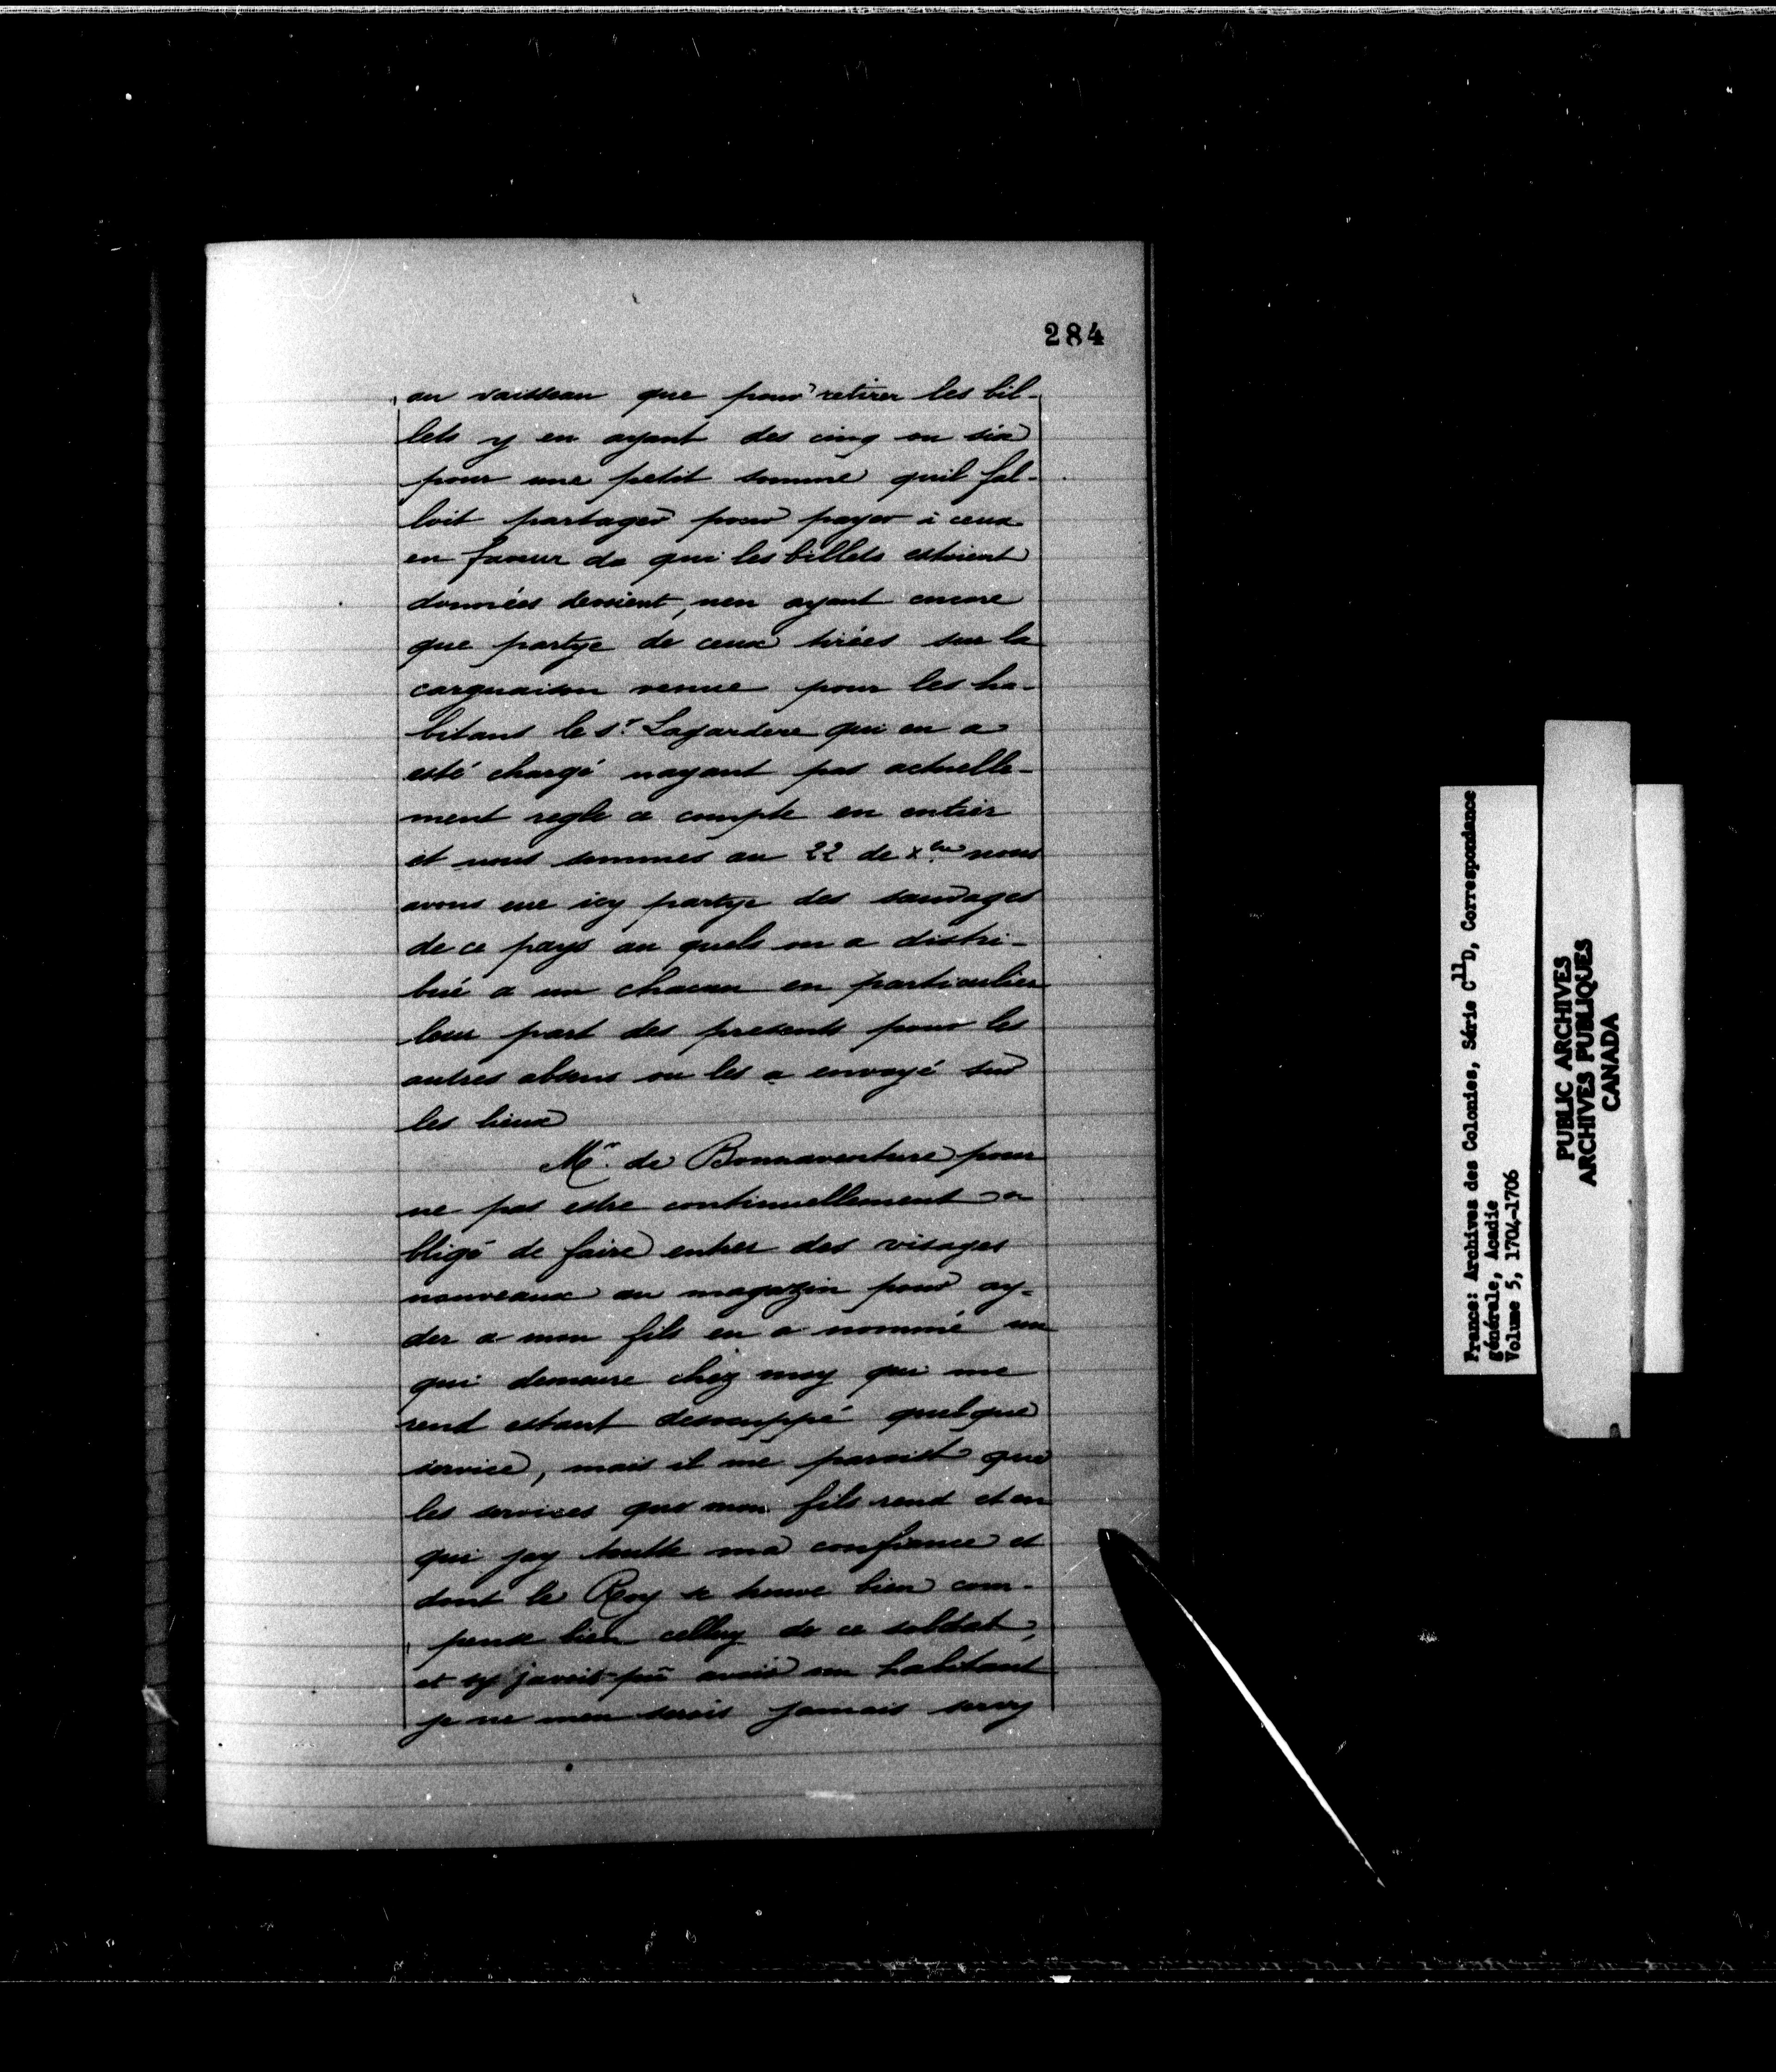 284
au vaisseau que pour retirer les bil-
lets y en ayant des cinq ou six
pour une petit somme quil fal-
loit partager pour payer à ceux
en faveur de qui les billets estoient
données devoient, nen ayant encore
que partye de ceux tirées sur la
carguaison venue pour les ha-
bitans le sr. Lagardere qui en a
esté chargé nayant pas actuelle-
ment regle ce compte en entier
et nous sommes au 22 de xbre nous
avons eue icy partye des sauvages
de ce pays au quels on a distri-
bué a un chacun en particulier
leur part des presents pour les
autres absens on les a envoyé sur
les lieux
Mr. de Bonnaventure pour
ne pas estre continuellement o-
bligé de faire entrer des visages
nouveaux au magazin pour ay-
der a mon fils en a nommé un
qui demeure chez moy qui me
rend estant desoccuppé quelque
service, mais il me paroist que
les services que mon fils rend et en
qui jay toutte ma confiance et
dont le Roy se trouve bien com-
pense bien celluy de ce soldat,
et sy javois pû avoir un habitant
je ne men serois jamais servy
France: Archives des Colonies, Série C11D, Correspondance
générale, Acadie
Volume 5, 1704-1706
PUBLIC ARCHIVES
ARCHIVES PUBLIQUES
CANADA